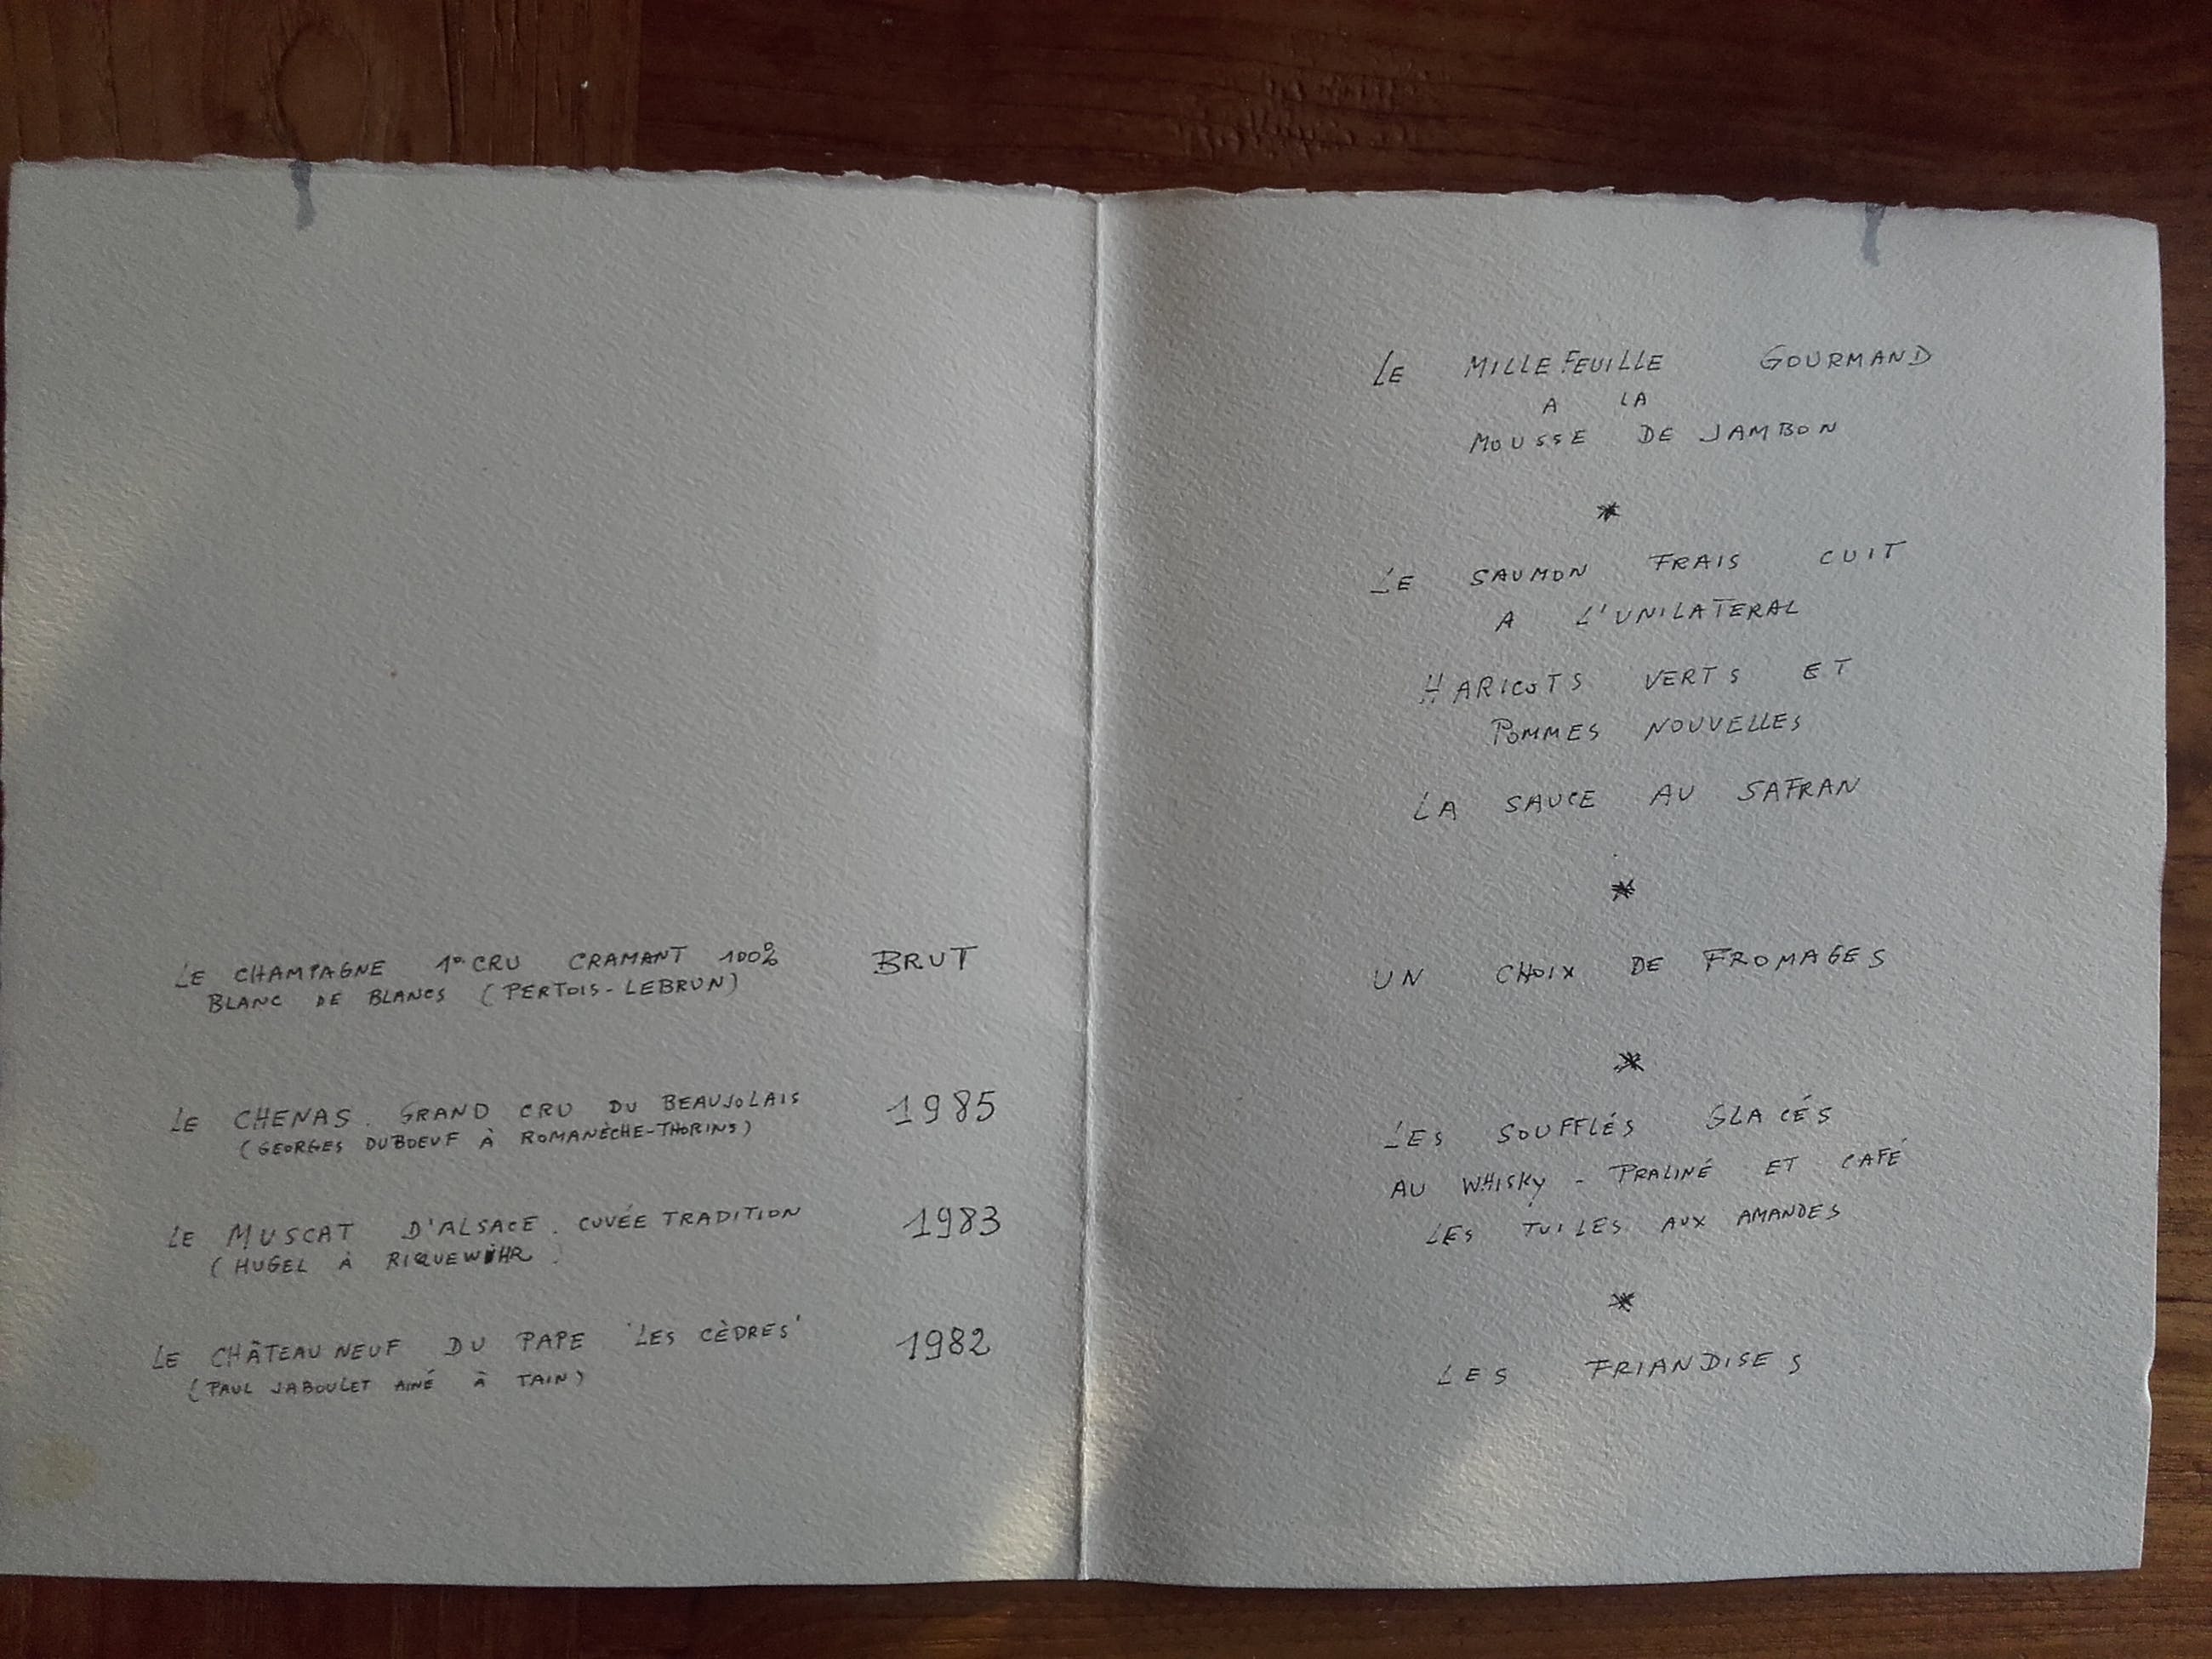 LE CHAMPAGNE 1º CRU CRAMANT 100% BRUT
BLANC DE BLANCS (PERTOIS-LEBRUN)
LE CHENAS. GRAND CRU DU BEAUJOLAIS 1985
(GEORGES DUBOEUF À ROMANÈCHE-THORINS)
LE MUSCAT D'ALSACE. CUVÉE TRADITION 1983
(HUGEL À RIQUEWIHR)
LE CHÂTEAUNEUF DU PAPE 'LES CÈDRES' 1982
(PAUL JABOULET AINÉ À TAIN)
LE MILLEFEUILLE GOURMAND
A LA
MOUSSE DE JAMBON
*
LE SAUMON FRAIS CUIT
A L'UNILATERAL
HARICOTS VERTS ET
POMMES NOUVELLES
LA SAUCE AU SAFRAN
*
UN CHOIX DE FROMAGES
*
LES SOUFFLÉS GLACÉS
AU WHISKY - PRALINÉ ET CAFÉ
LES TUILES AUX AMANDES
*
LES FRIANDISES